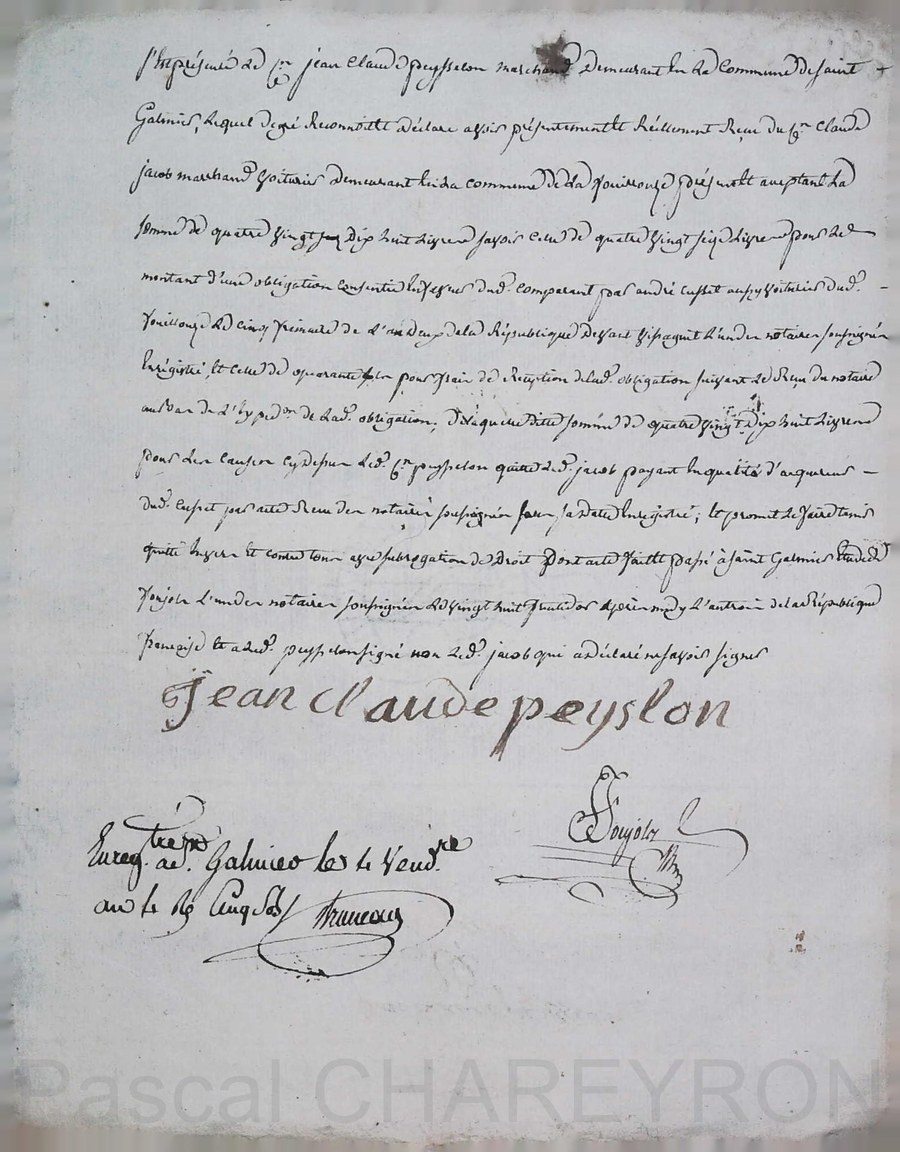 S'est présenté le cn jean Claude peysselon marchand demeurant en la Commune de saint
Galmier, lequel de gré Reconnoit et déclare avoir présentement et Réellement Reçu du cn Claude
jacob marchand voiturier demeurant en la commune de la fouillouze présent et acceptant la
somme de quatre vingt dix huit Livres savoir celle de quatre vingt seize Livres pour le
montant d'une obligation consentie en faveur dud. comparant par andré cusset aussy voiturier dud.
fouillouze le cinq frimaire de l'an deux de la République devant l'un des notaires soussignés
Enrégistré, et celle de quarante pour frais de Reception de lad. obligation suivant le Reçu du notaire
au bas de l'expedon de lad. obligation, de laquelle ditte somme de quatre vingt dix huit Livres
pour les causes cy dessus led. cn peysselon quitte led. jacob payant en qualité d'acquereur
dud. cusset par acte Reçu des notaires soussignés sa date Enregistré; et promet le faire tenir
quitte envers et contre tous avec subrogation de droit Dont acte fait et passé à saint Galmier Etude de
foujols l'un des notaires soussignés le vingt huit fructidor après midy l'an trois de la République
francoise et a led. peysselon signé non led. jacob qui a déclaré ne savoir signer
jean claude peyslon
foujols
Enreg. a Galmier le 4 Vend.re
an 4 Rs Cinq sols